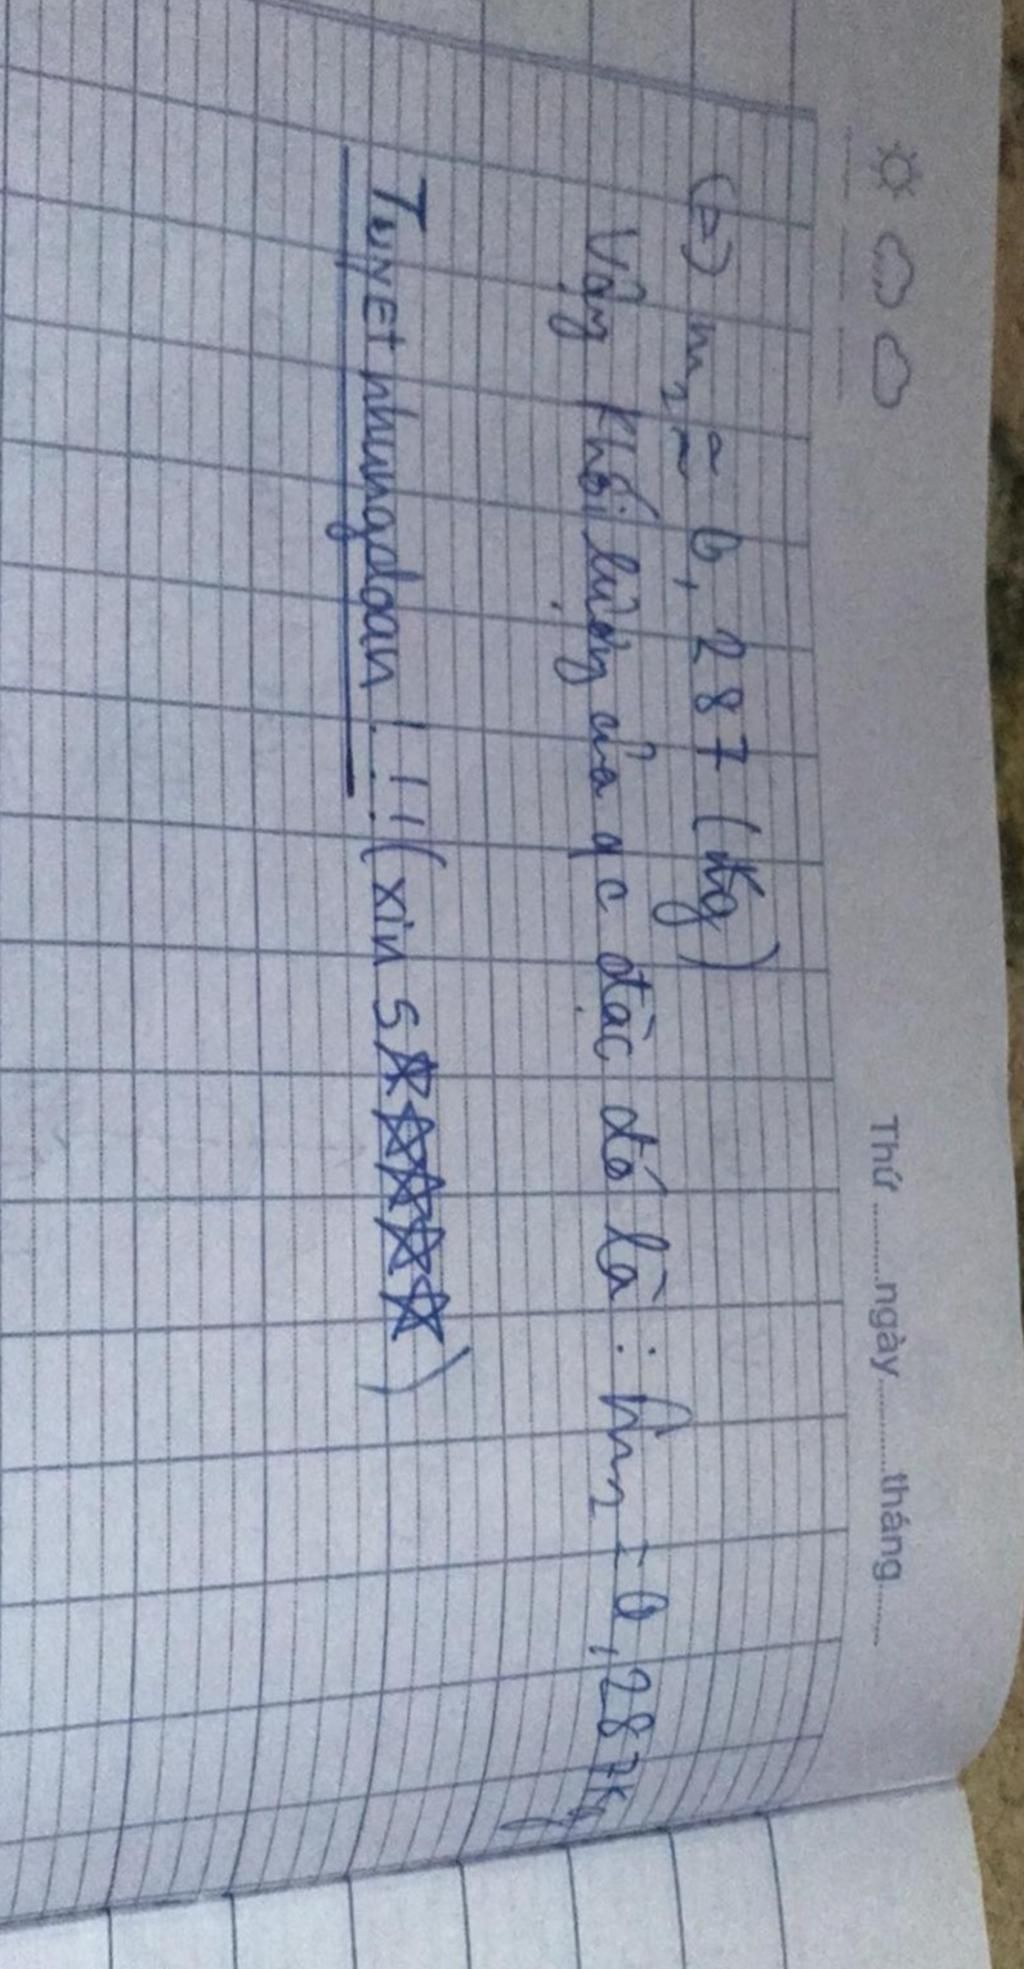 Thứ ngày tháng
(=) m₂ ≈ 0,287 (kg)
Vậy khối lượng của qc đặc đó là : m₂ = 0,287kg
Tuyetnhungdoan ! ! ! (xin 5 ☆☆☆☆☆)